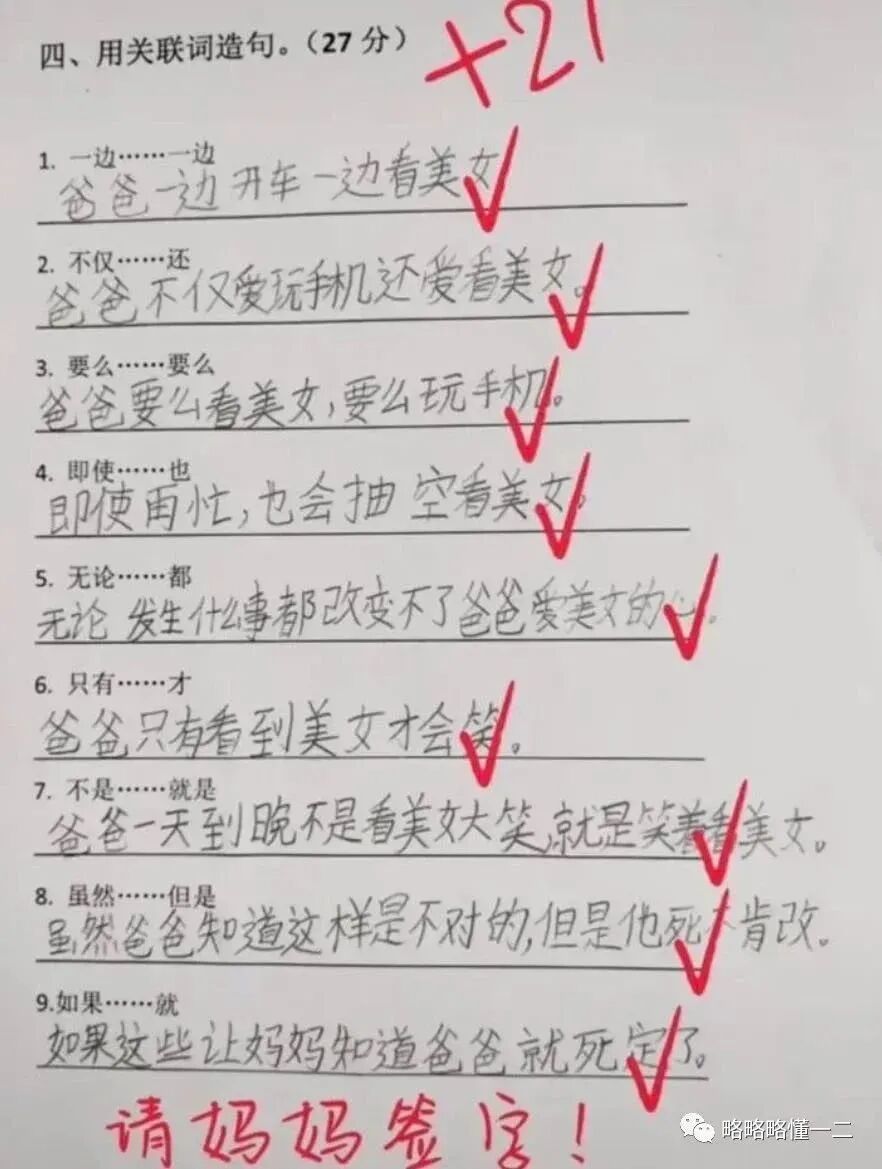 四、用关联词造句。(27 分)
+27
1. 一边……一边
爸爸一边开车一边看美女
2. 不仅……还
爸爸不仅爱玩手机还爱看美女。
3. 要么……要么
爸爸要么看美女,要么玩手机。
4. 即使……也
即使再忙,也会抽空看美女。
5. 无论……都
无论发生什么事都改变不了爸爸爱美女的心。
6. 只有……才
爸爸只有看到美女才会笑。
7. 不是……就是
爸爸一天到晚不是看美女大笑,就是笑着看美女。
8. 虽然……但是
虽然爸爸知道这样是不对的,但是他死不肯改。
9.如果……就
如果这些让妈妈知道爸爸就死定了。
请妈妈签字!
略略略懂一二